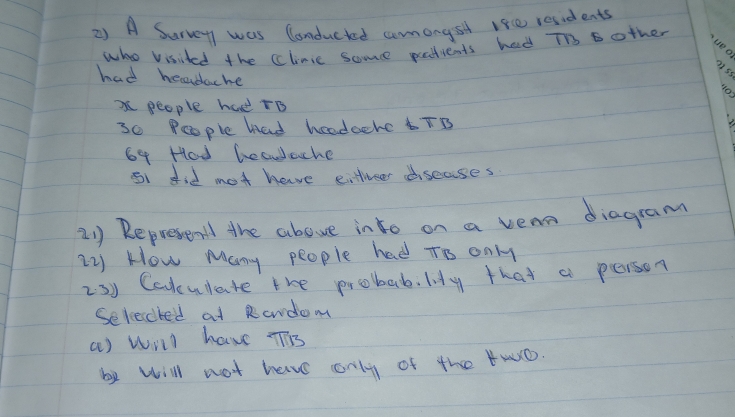 2) A Survey was Conducted amongst 180 residents
who visited the Clinic some patients had TB & other
had headache
x people had TB
30 People had headache & TB
64 Had headache
51 did not have either diseases.
21) Represent the above info on a venn diagram
22) How Many people had TB only
23) Calculate the probability that a person
Selected at Random
a) Will have TB
b) Will not have only of the two.